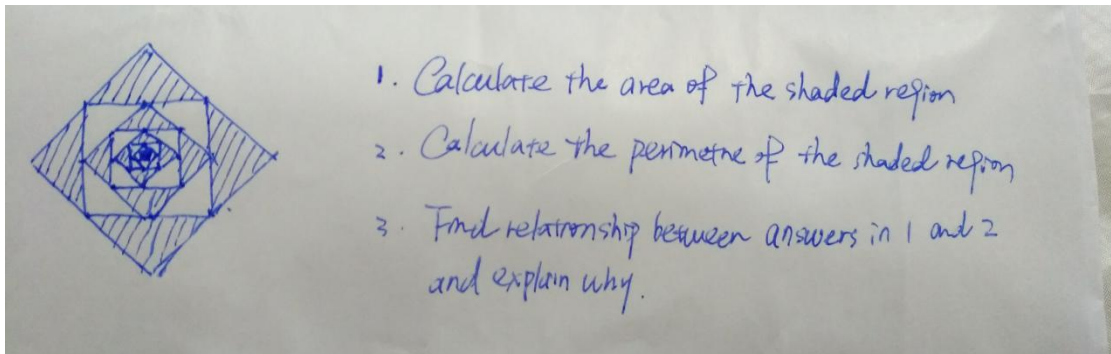 1. Calculate the area of the shaded region
2. Calculate the perimetre of the shaded region
3. Find relationship between answers in 1 and 2
and explain why.